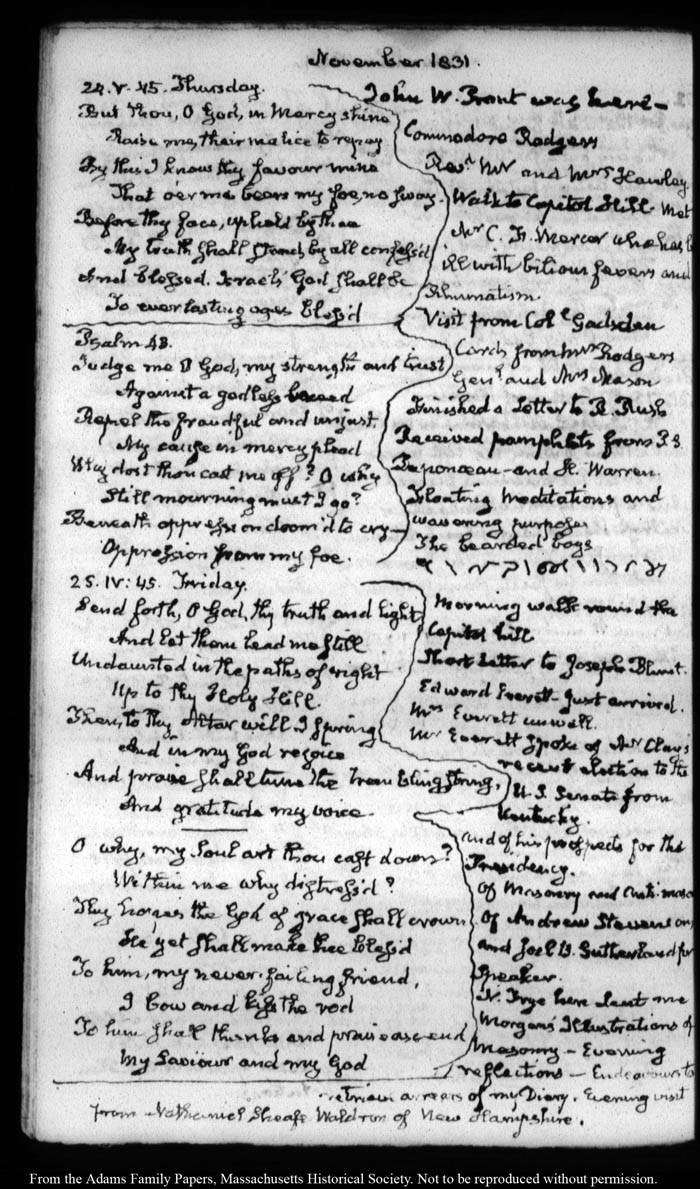 November 1831.
24. V. 45. Thursday.
But thou, O God, in Mercy shine
Raise me, their malice to repay
By this I know thy favour mine
That o'er me bears my foe, no sway.
Before thy face, upheld by thee
My truth shall stand, by all confess'd
And blessed, Israel's God shall be
To everlasting ages bless'd
Psalm 43.
Judge me O God, my strength and trust
Against a godless breed
Repel the fraudful and unjust,
My cause in mercy plead
Why dost thou cast me off? O why
Still mourning must I go?
Beneath oppression doom'd to cry—
Oppression from my foe.
John W. Pront was here—
Commodore Rodgers
Revd. Mr and Mrs Hawley
Walk to Capitol Hill. Met
Mr C. F. Mercer who has b
ill with bilious fevers and
Rhumatism.
Visit from Col. Gadsden
Cards from Mrs Rodgers
Genl. and Mrs Mason
Finished a Letter to R. Rush
Received pamphlets from P. S.
Duponceau—and H. Warren.
Floating Meditations and
wavering purposes
The bearded boys
25. IV: 45. Friday.
Send forth, O God, thy truth and light
And let them lead me still
Undaunted in the paths of right
Up to thy Holy Hill.
Then, to thy Altar will I spring
And in my God rejoice
And praise shall tune the trembling string,
And gratitude my voice.
O why, my Soul art thou cast down?
Within me why distress'd?
Thy hopes the God of grace shall crown
He yet shall make thee bless'd
To him, my never-failing friend,
I bow and kiss the rod
To him shall thanks and praise ascend
My Saviour and my God
Morning walk round the
Capitol hill
Short Letter to Joseph Blunt.
Edward Everett just arrived.
Mrs Everett unwell.
Mr Everett spoke of Mr Clay's
recent election to the
U. S. Senate from
Kentucky.
and of his prospects for the
Presidency.
Of Masonry and Anti-maso
Of Andrew Stevenson,
and Joel B. Sutherland for
Speaker.
N. Frye here Lent me
Morgan's Illustrations of
Masonry—Evening
reflections—Endeavours to
retrieve arrears of my Diary. Evening visit
from Nathaniel Sheafe Waldron of New Hampshire.
From the Adams Family Papers, Massachusetts Historical Society. Not to be reproduced without permission.